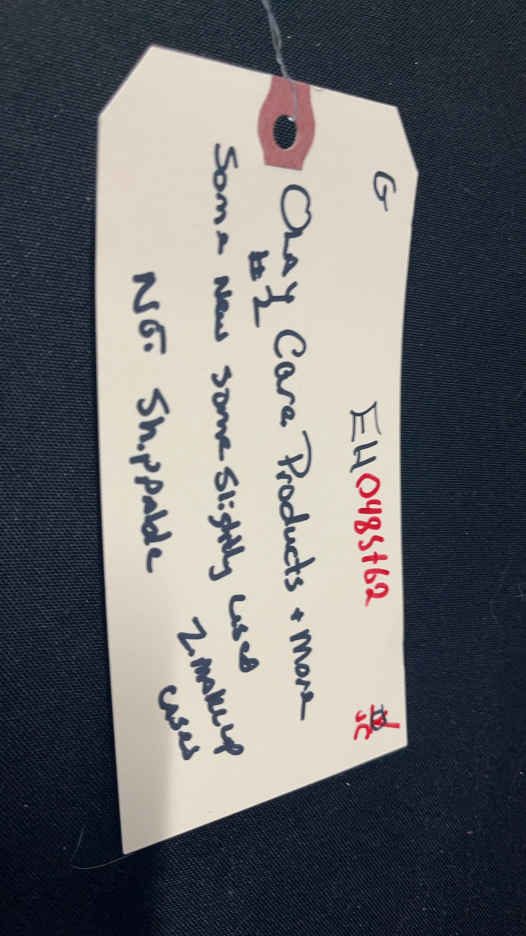 G EH0485t62
Olay Care Products + More
#1
Some New Some Slightly used
2. makeup
cases
NG. Shippable